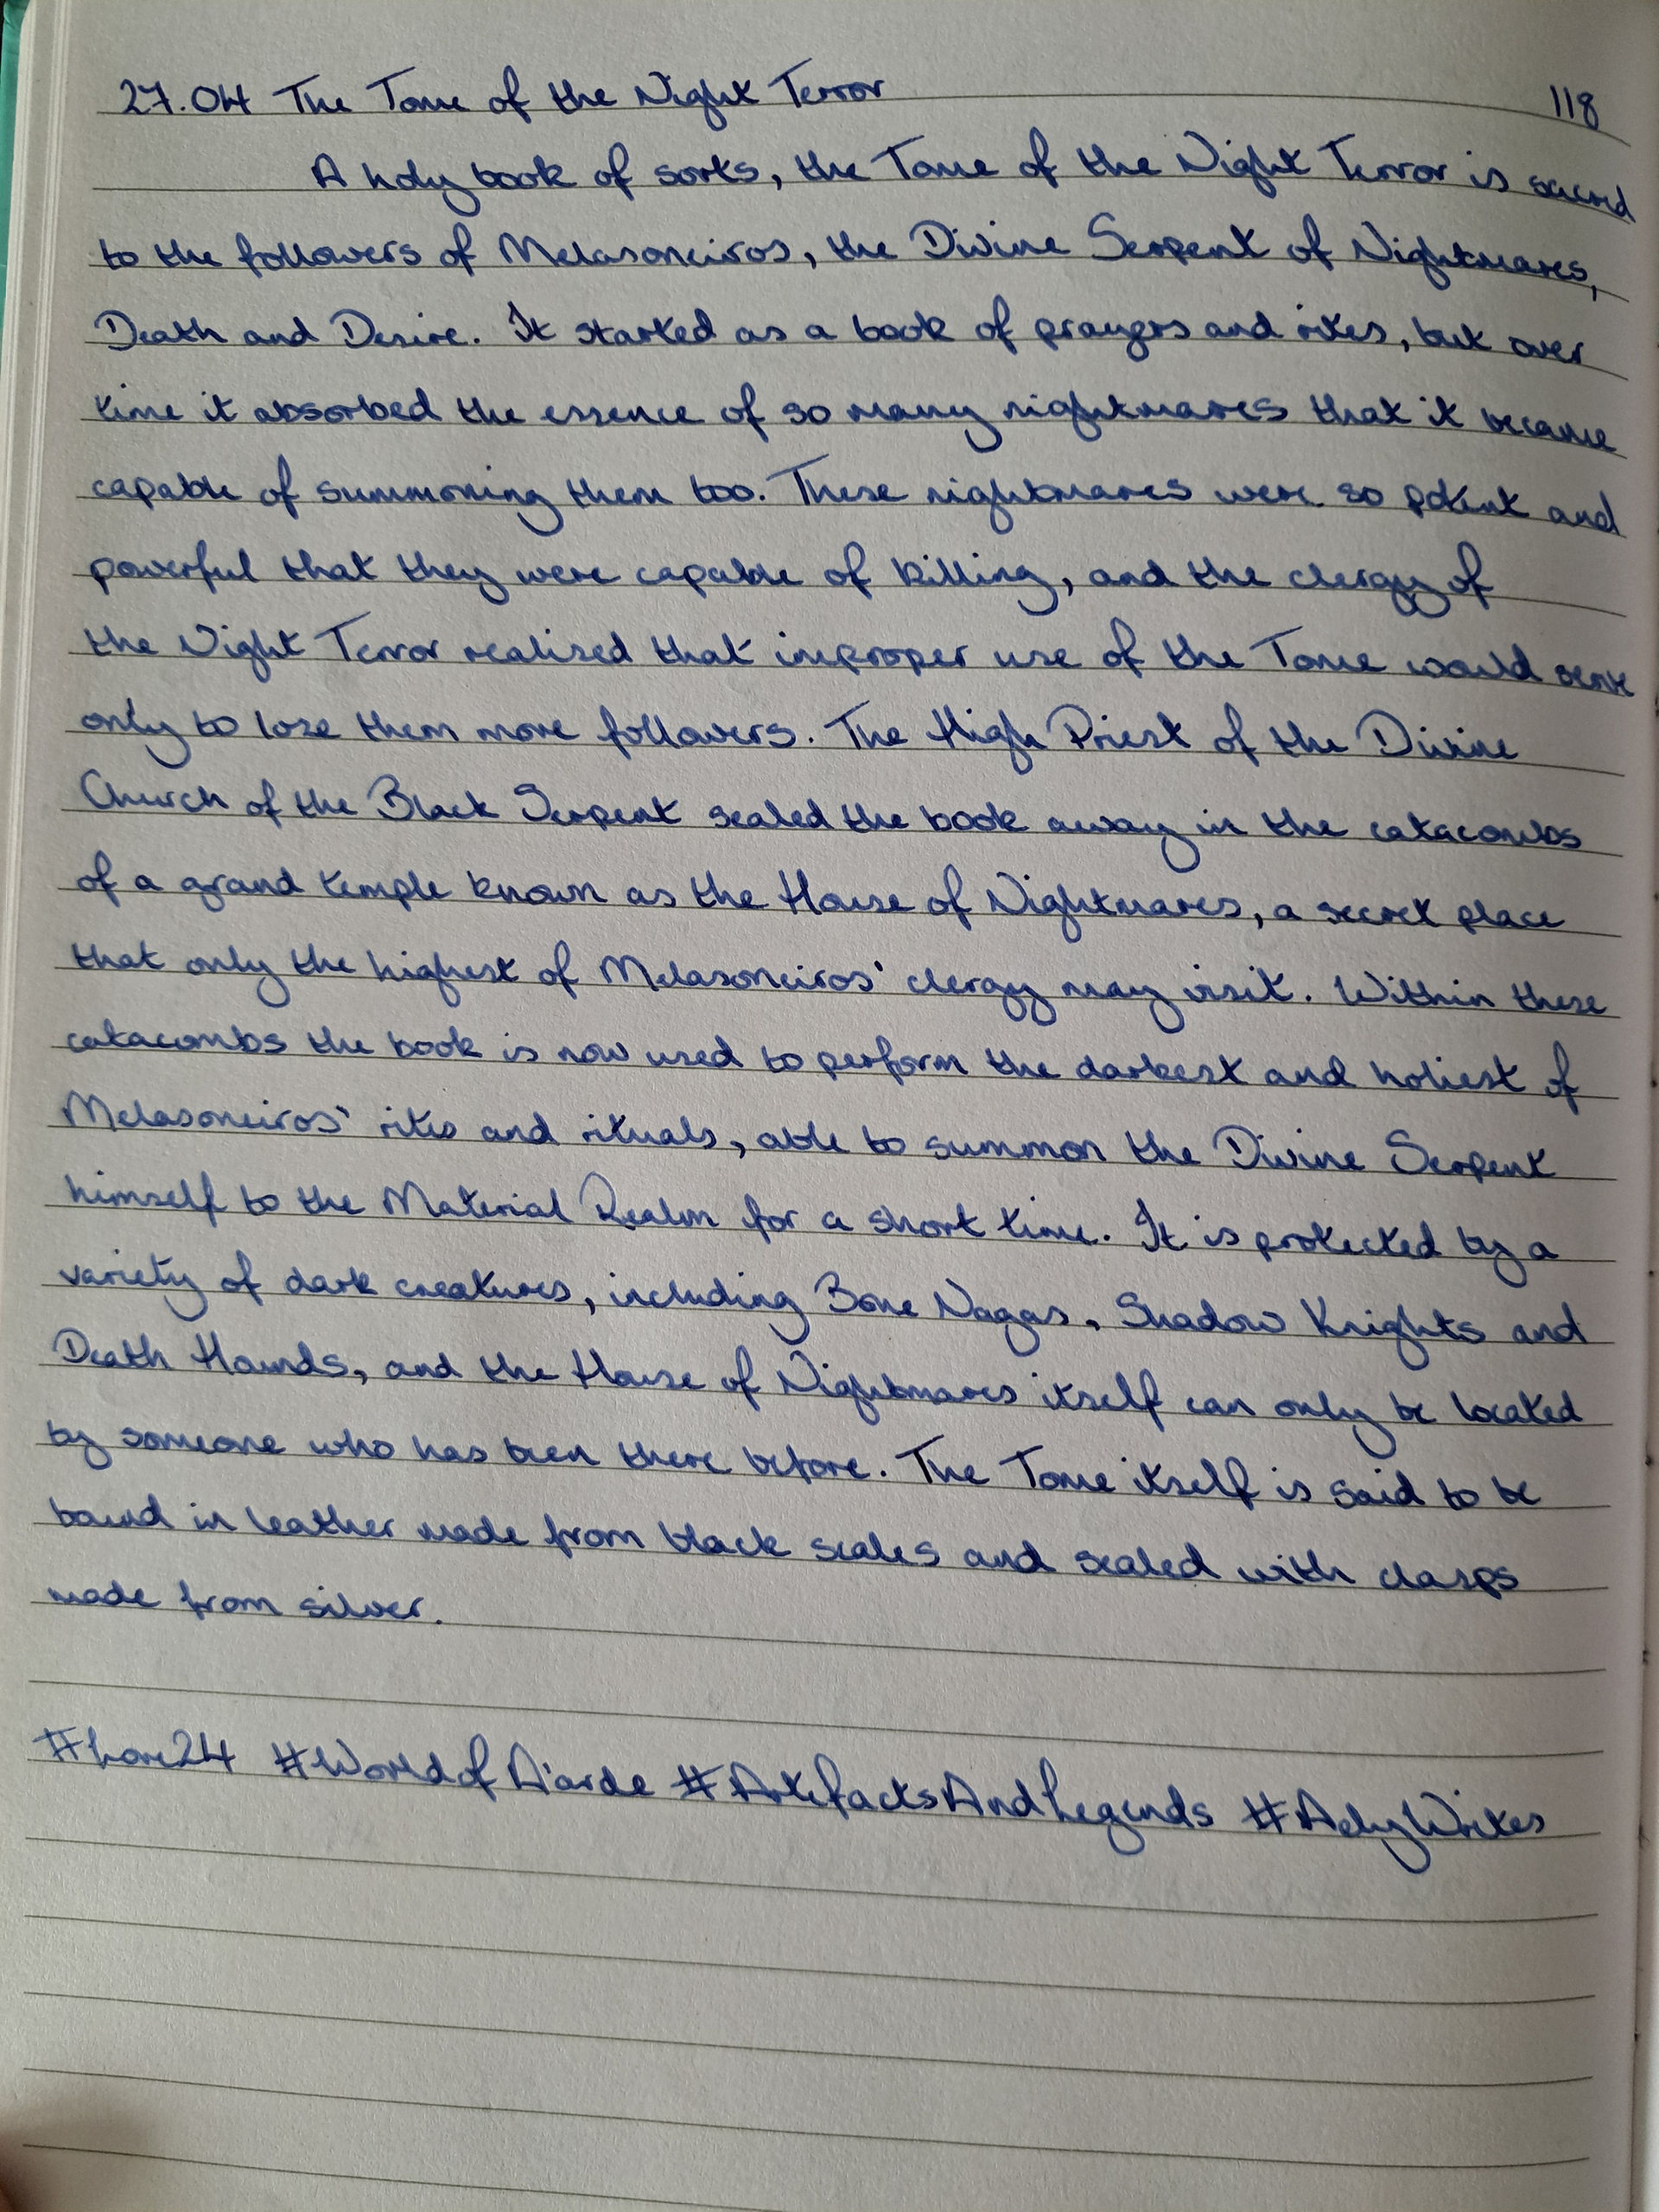 27.04 The Tome of the Night Terror
118
A holy book of sorts, the Tome of the Night Terror is sacred
to the followers of Melasoneiros, the Divine Serpent of Nightmares,
Death and Desire. It started as a book of prayers and rites, but over
time it absorbed the essence of so many nightmares that it became
capable of summoning them too. These nightmares were so potent and
powerful that they were capable of killing, and the clergy of
the Night Terror realised that improper use of the Tome would serve
only to lose them more followers. The High Priest of the Divine
Church of the Black Serpent sealed the book away in the catacombs
of a grand temple known as the House of Nightmares, a secret place
that only the highest of Melasoneiros' clergy may visit. Within these
catacombs the book is now used to perform the darkest and holiest of
Melasoneiros' rites and rituals, able to summon the Divine Serpent
himself to the Material Realm for a short time. It is protected by a
variety of dark creatures, including Bone Nagas, Shadow Knights and
Death Hounds, and the House of Nightmares itself can only be located
by someone who has been there before. The Tome itself is said to be
bound in leather made from black scales and sealed with clasps
made from silver.
#Lore24 #WorldofAiarde #ArtefactsAndLegends #AdyWrites